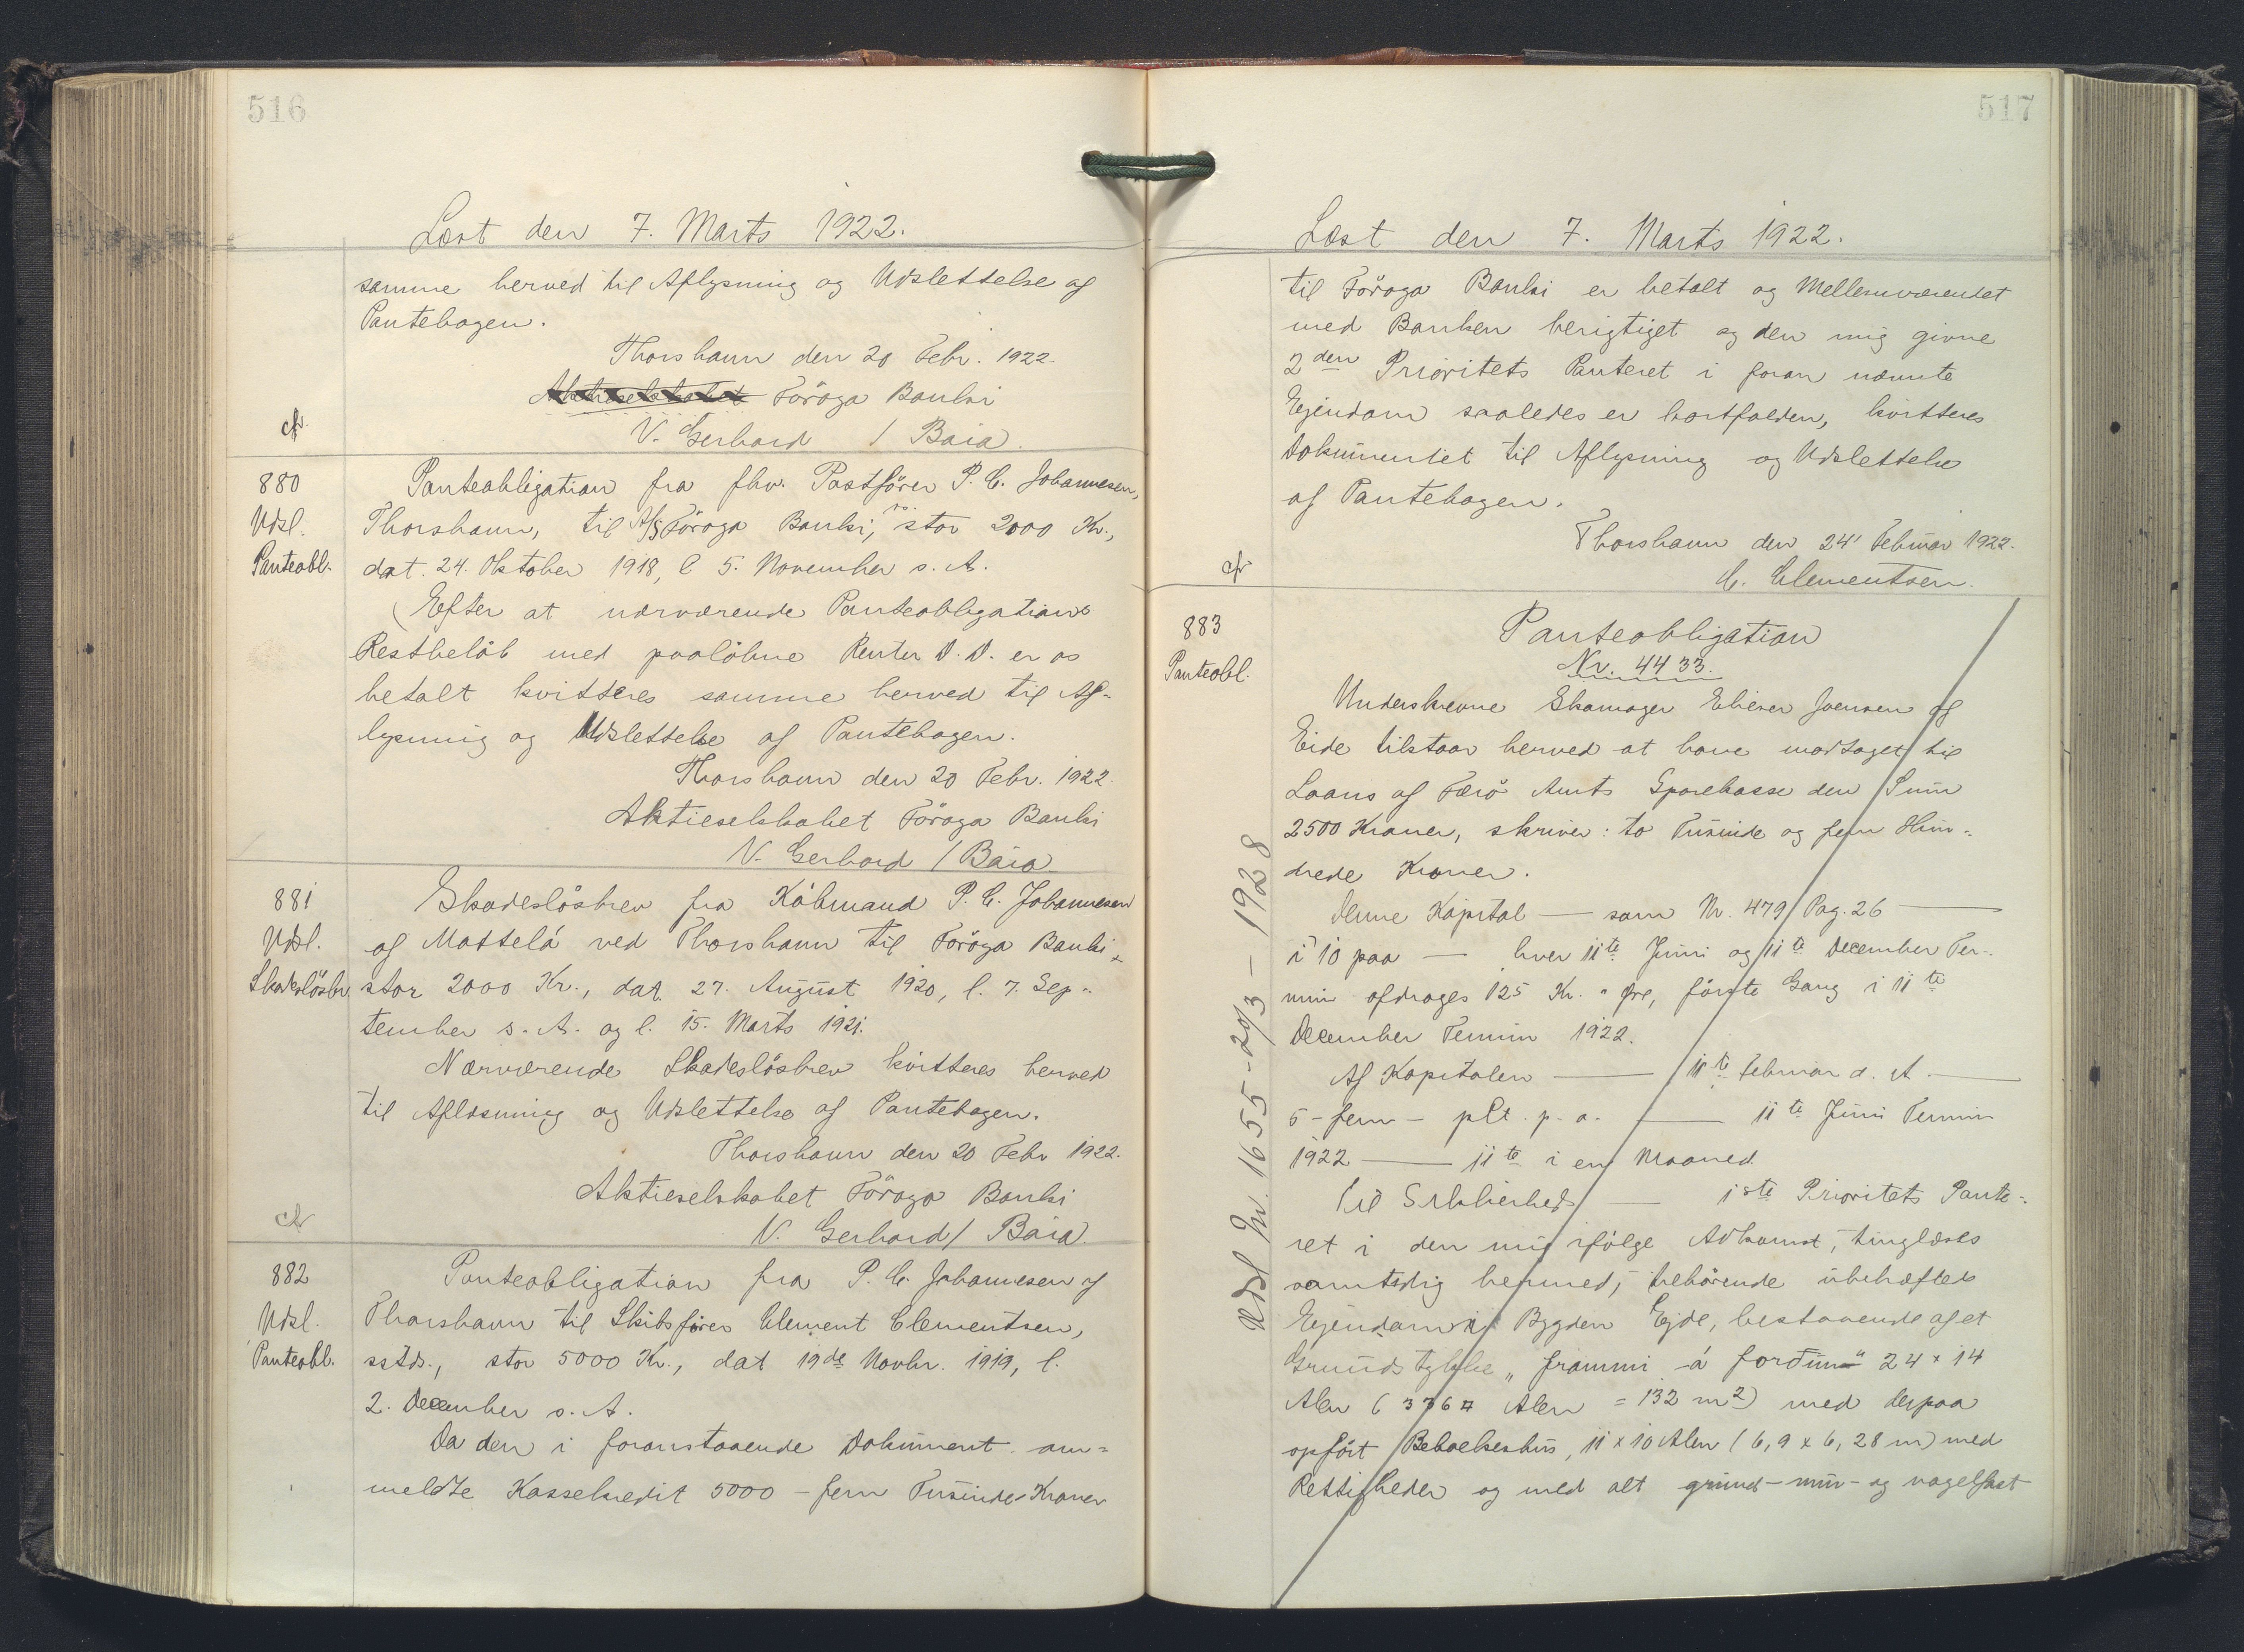 516
Læst den 7. Marts 1922.
samme herved til Aflysning og Udslettelse af
Pantebogen.
Thorshavn den 20 Febr. 1922.
Aktieselskabet Föroya Banki
cfr.
V. Gerhard / Baia.
880
Udsl.
Panteobl.
Panteobligation fra fhv. Postförer P. C. Johannesen,
Thorshavn, til A/S Föroya Banki, ss. stor 2000 Kr.,
dat. 24. Oktober 1918, l 5. November s. A.
Efter at nærværende Panteobligations
Restbelöb med paalöbne Renter D. D. er os
betalt kvitteres samme herved til Af-
lysning og Udslettelse af Pantebogen.
Thorshavn den 20 Febr. 1922.
Aktieselskabet Föroya Banki
V. Gerhard / Baia
881
Udsl.
Skadeslösbr.
Skadeslösbrev fra Köbmand P. C. Johannesen
af Mattelá ved Thorshavn til Föroya Banki,
stor 2000 Kr., dat. 27. August 1920, l. 7. Sep-
tember s. A. og l. 15. Marts 1921.
Nærværende Skadeslösbrev kvitteres herved
til Aflæsning og Udslettelse af Pantebogen.
Thorshavn den 20 Febr 1922.
Aktieselskabet Föroya Banki
cfr
V. Gerhard / Baia.
882
Udsl.
Panteobl.
Panteobligation fra P. C. Johannesen af
Thorshavn til Skibsförer Clement Clementsen,
sstds., stor 5000 Kr., dat 19de Novbr. 1919, l.
2. December s. A.
Da den i foranstaaende Dokument om=
meldte Kassekredit 5000 - fem Tusinde - Kroner
517
Læst den 7. Marts 1922.
til Föroya Banki er betalt og Mellemværendet
med Banken berigtiget og den mig givne
2den Prioritets Panteret i foran nævnte
Ejendom saaledes er bortfalden, kvitteres
Dokumentet til Aflysning og Udslettelse
af Pantebogen.
Thorshavn den 24' Februar 1922.
cfr
C. Clementsen.
883
Panteobl.
Panteobligation
Nr. 4433.
Underskrevne Skomager Elieser Joensen af
Eide tilstaar herved at have modtaget til
Laans af Færö Amts Sparekasse den Sum
2500 Kroner, skriver: to Tusinde og fem Hun-
drede Kroner.
Denne Kapital — som Nr. 479 Pag. 26 —
i 10 paa — hver 11te Juni og 11te December Ter-
min afdrages 125 Kr. " Öre, förste Gang i 11te
December Termin 1922.
Af Kapitalen — 11te Februar d. A. —
5 - fem - pCt. p. a. — 11te Juni Termin
1922 — 11te i en Maaned.
Til Sikkerhed — 1ste Prioritets Pante-
ret i den mig ifölge Adkomst, tinglæses
samtidig hermed, tilhörende ubehæftede
Ejendom i Bygden Ejde, bestaaende af et
Grundstykke „frammi á fordum" 24 x 14
Alen (336 □ Alen = 132 m2) med derpaa
opfört Beboelseshus, 11 x 10 Alen (6,9 x 6,28 m) med
Rettigheder og med alt grund- mur- og nagelfast
Udsl Nr. 1655 - 29/3 - 1928